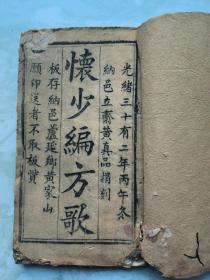 光緒三十有二年丙午冬
納邑立齋黃真品捐刻
懷少編方歌
板存納邑蘆延鄉黃家山
願印送者不取板貲